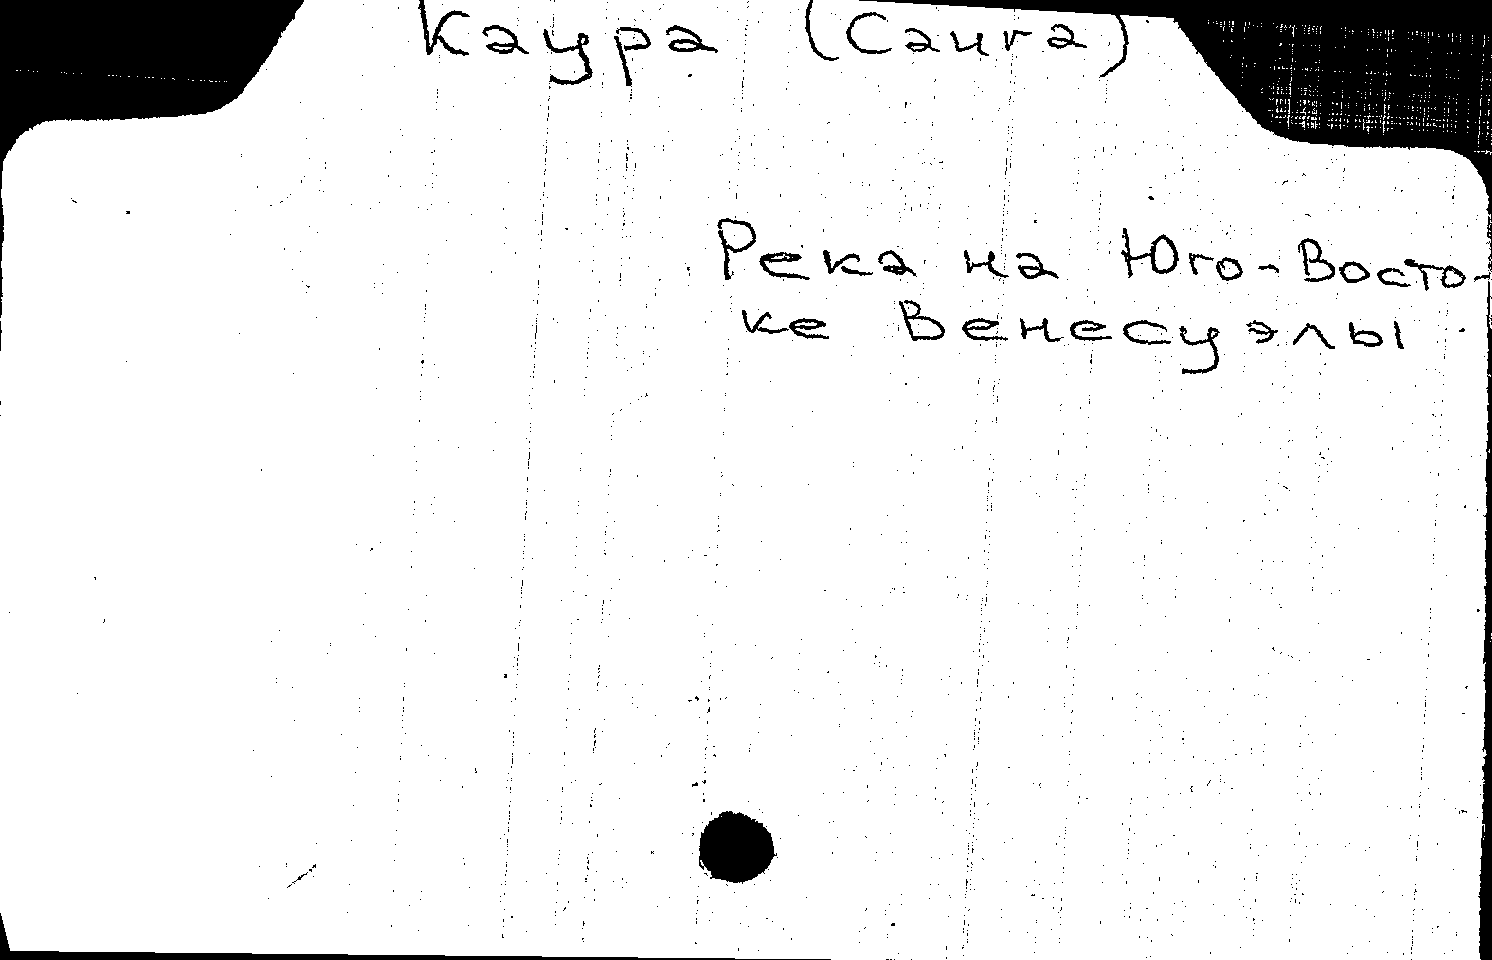 Каура (Caura)
Река на Юго-Восто-
ке Венесуэлы